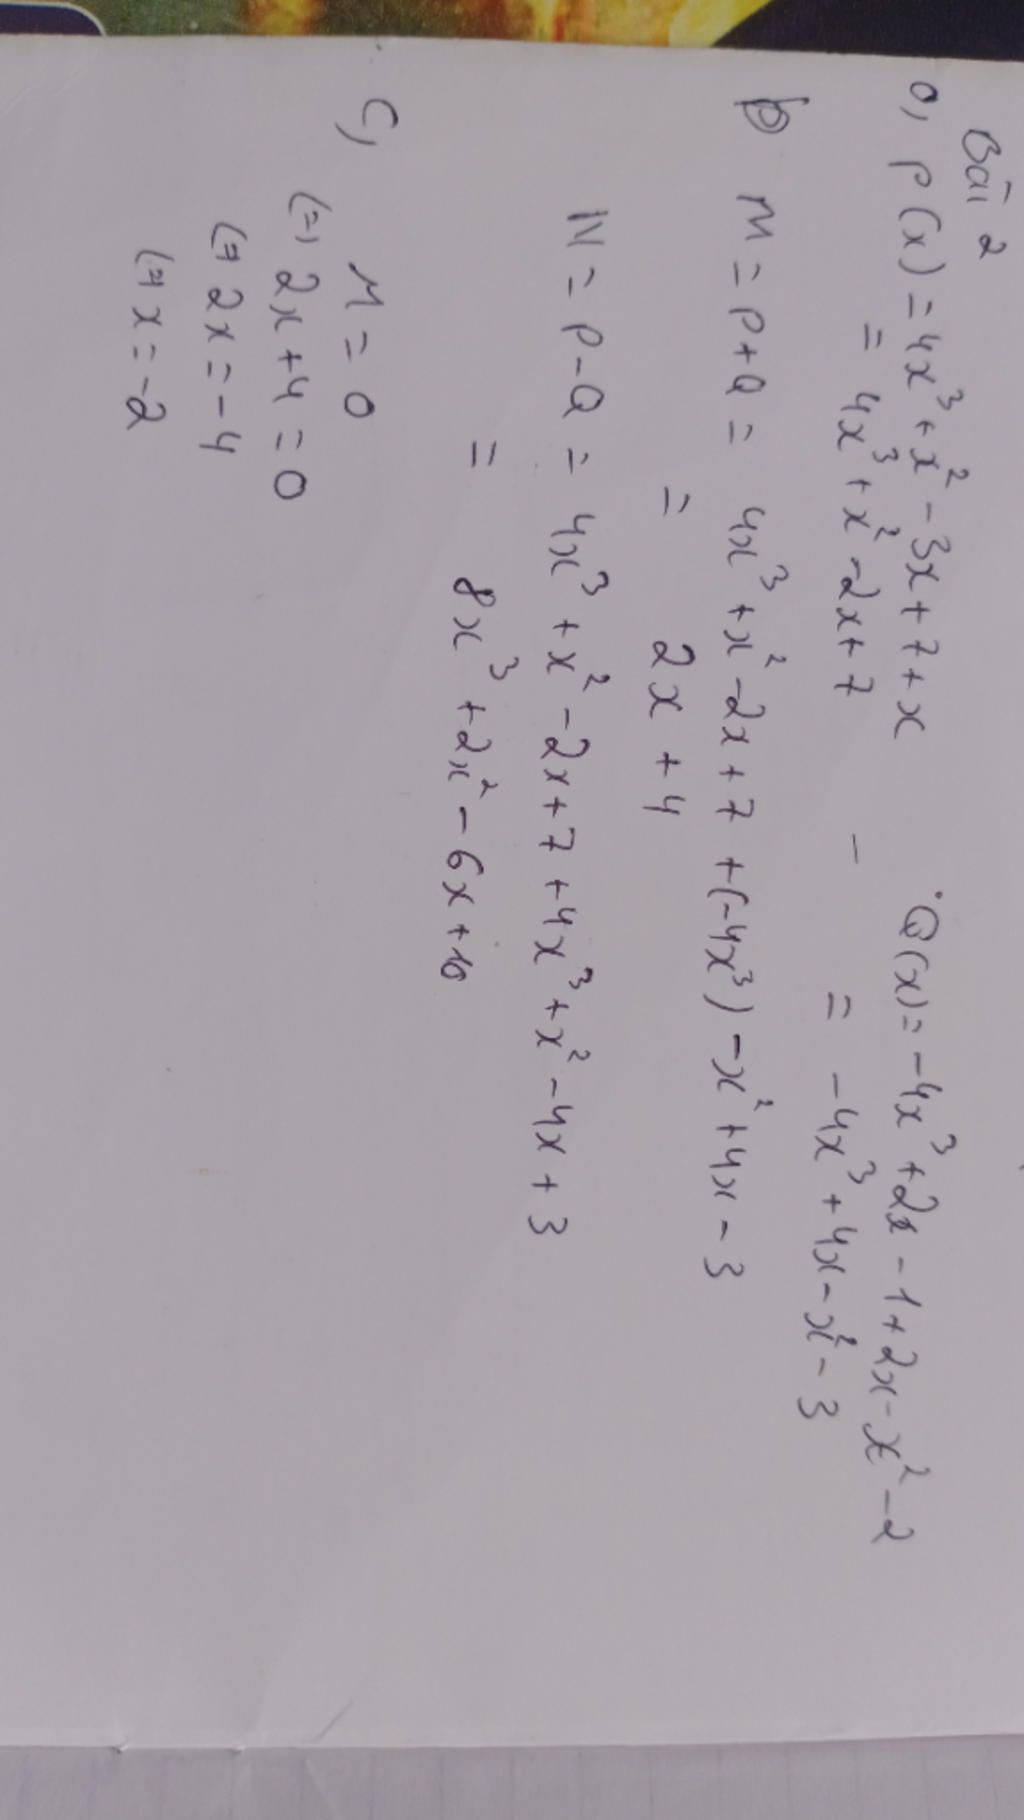 Bài 2
a, P(x) = 4x³ + x² - 3x + 7 + x
= 4x³ + x² - 2x + 7
Q(x) = -4x³ + 2x - 1 + 2x - x² - 2
= -4x³ + 4x - x² - 3
b) M = P + Q = 4x³ + x² - 2x + 7 + (-4x³) - x² + 4x - 3
= 2x + 4
N = P - Q = 4x³ + x² - 2x + 7 + 4x³ + x² - 4x + 3
= 8x³ + 2x² - 6x + 10
c, M = 0
(=) 2x + 4 = 0
(=) 2x = -4
(=) x = -2